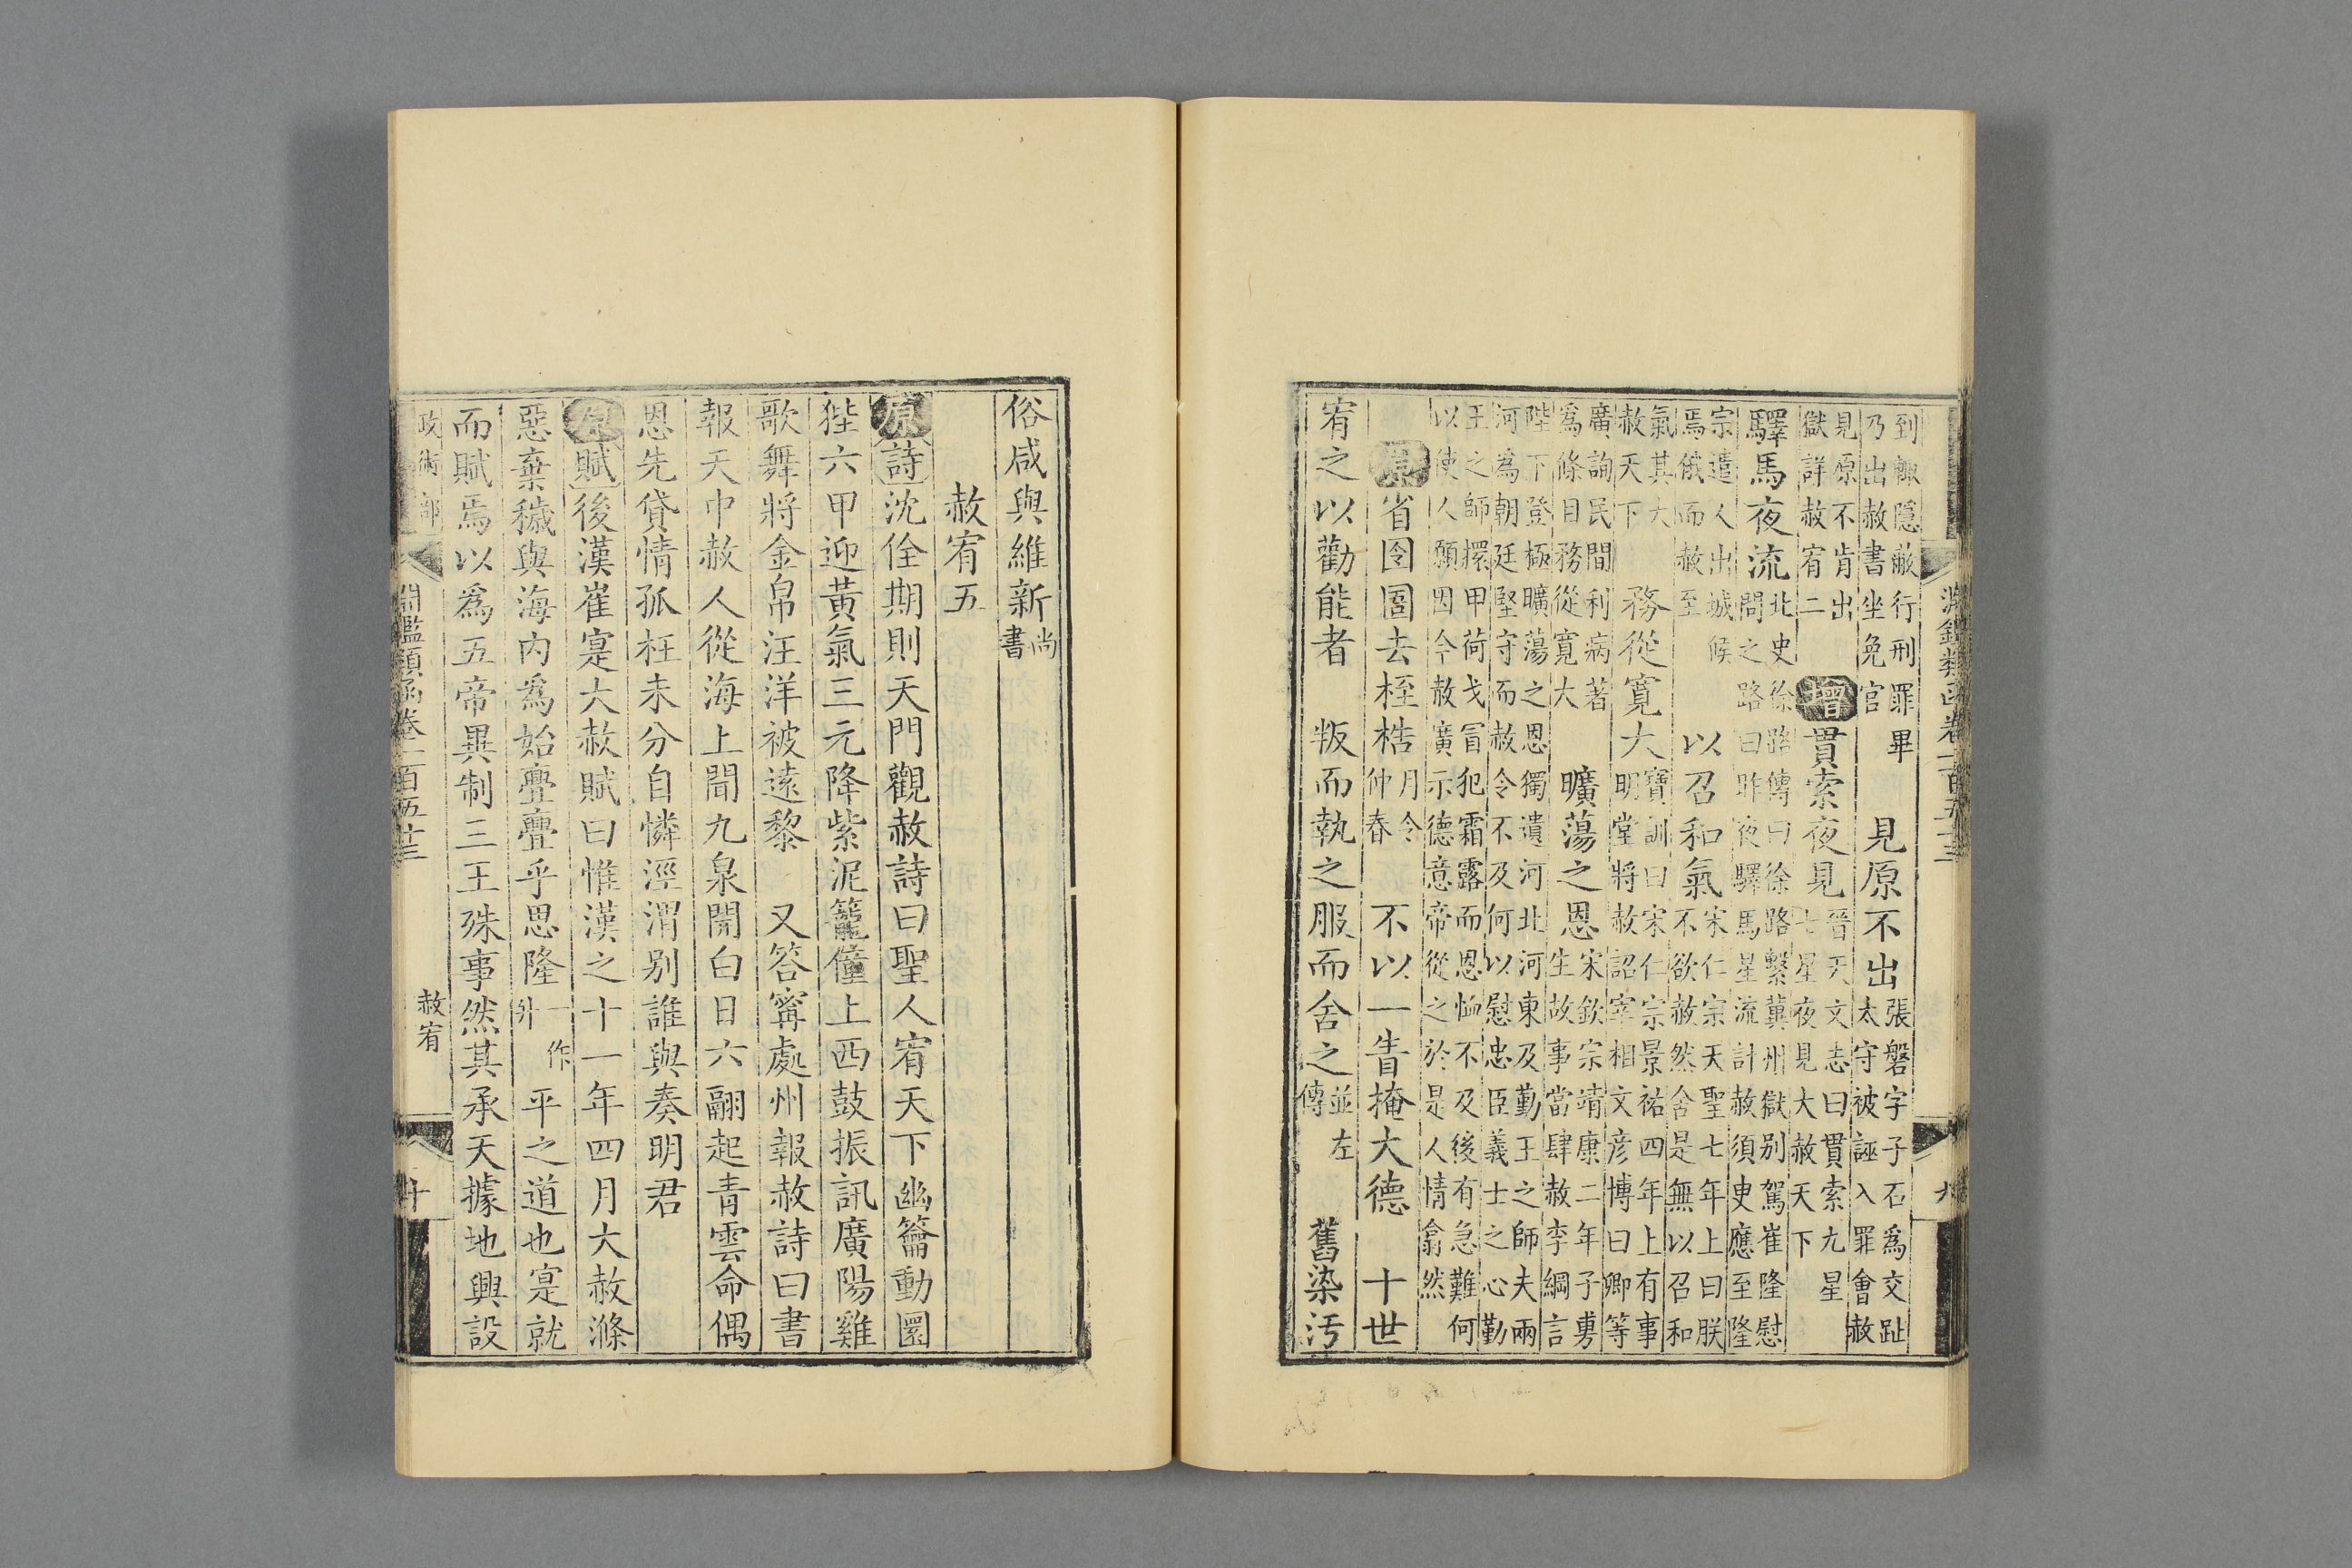 到輙隱蔽行刑罪畢
乃出赦書坐免官
見原不出
張磐字子石爲交趾
太守被誣入罪會赦
見原不肯出
獄詳赦宥二
增貫索夜見
晉天文志曰貫索九星
七星夜見大赦天下
驛馬夜流
北史徐路傳曰徐路繫冀州獄别駕崔隆慰
問之路曰昨夜驛馬星流計赦須臾應至隆
宗遣人出城候
焉俄而赦至
以召和氣
宋仁宗天聖七年上曰朕
不欲赦然舍是無以召和
氣其大
赦天下
務從寬大
寶訓曰宋仁宗景祐四年上有事
明堂將赦詔宰相文彦博曰卿等
廣詢民間利病著
爲條目務從寬大
曠蕩之恩
宋欽宗靖康二年子旉
生故事當肆赦李綱言
陛下登極曠蕩之恩獨遺河北河東及勤王之師夫兩
河爲朝廷堅守而赦令不及何以慰忠臣義士之心勤
王之師擐甲荷戈冒犯霜露而恩恤不及後有急難何
以使人願因今赦廣示德意帝從之於是人情翕然
原省囹圄去桎梏
月令
仲春
不以一眚掩大德 十世
宥之以勸能者 叛而執之服而舍之
並左
傳
舊染汚
俗咸與維新
尚
書
赦宥五
原詩沈佺期則天門觀赦詩曰聖人宥天下幽籥動圜
狴六甲迎黃氣三元降紫泥籠僮上西鼓振訊廣陽雞
歌舞將金帛汪洋被遠黎 又答寗處州報赦詩曰書
報天中赦人從海上聞九泉開白日六翮起青雲命偶
恩先貸情孤枉未分自憐涇渭别誰與奏明君
原賦後漢崔寔大赦賦曰惟漢之十一年四月大赦滌
惡棄穢與海内爲始亹亹乎思隆
一作
升
平之道也寔就
而賦焉以爲五帝異制三王殊事然其承天據地興設
政術部
淵鑑類函卷一百五十三
赦宥
十